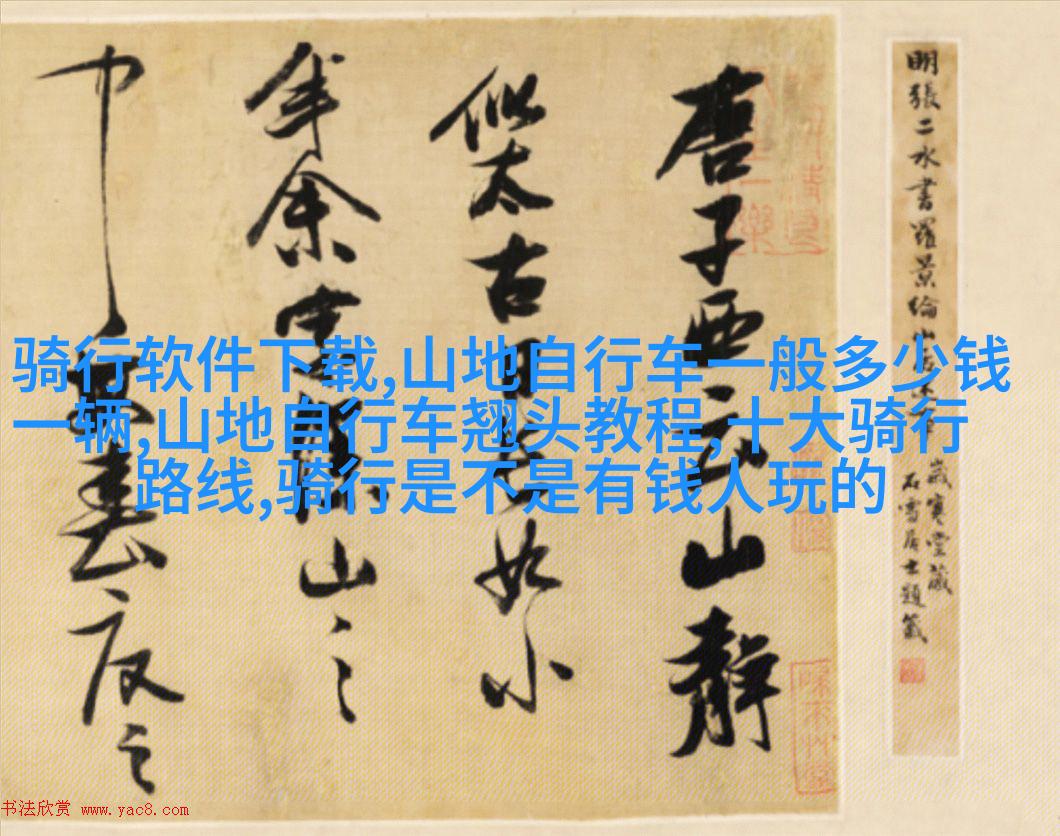 骑行软件下载,山地自行车一般多少钱
一辆,山地自行车翘头教程,十大骑行
路线,骑行是不是有钱人玩的
明張二水書羅景綸山
歲寒堂藏
石雪居士題籤
唐子西云山靜
似太古日長如小
年余家深山之
中每春夏之
书法欣赏 www.yac8.com